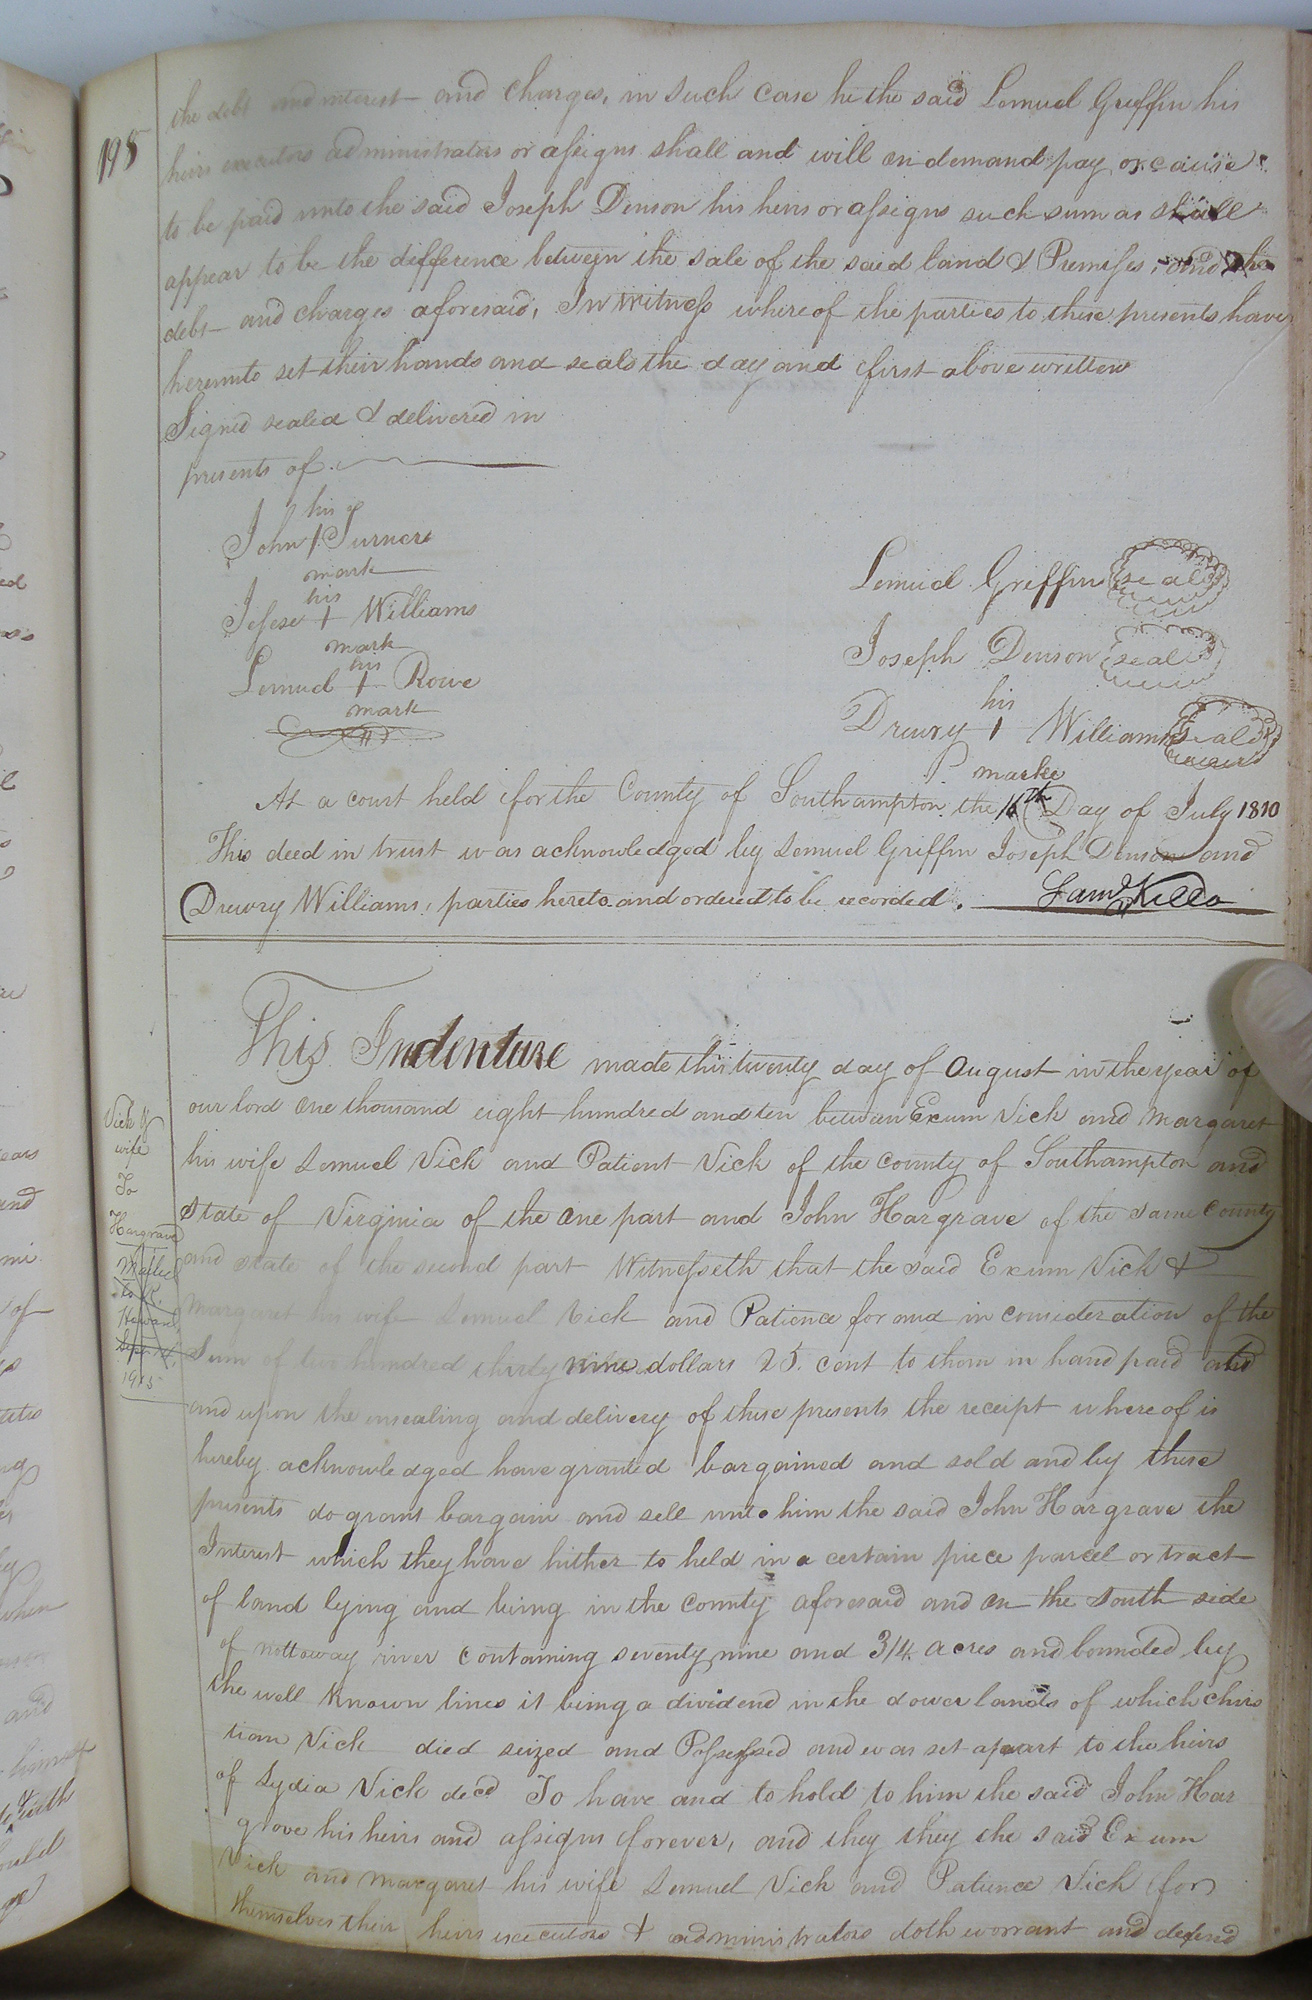 198
the debt and interest and charges, in such case he the said Lemuel Griffin his
heirs executors administrators or assigns shall and will on demand pay or cause
to be paid unto the said Joseph Denson his heirs or assigns such sum as shall
appear to be the difference between the sale of the said land & Premises, and the
debt and charges aforesaid, In witness whereof the parties to these presents have
hereunto set their hands and seals the day and first above written
Signed sealed & delivered in
presents of
his
John Turner
mark
his
Jesese + Williams
mark
his
Lemuel + Rowe
mark
Lemuel Griffin seal
Joseph Denson seal
his
Drewry + Williams seal
marke
At a court held for the County of Southampton the 16th Day of July 1810
This deed in trust was acknowledged by Lemuel Griffin Joseph Denson and
Drewry Williams, parties hereto and ordered to be recorded.
Saml Kello
This Indenture made this twenty day of August in the year of
our lord one thousand eight hundred and ten between Exum Vick and Margaret
his wife Lemuel Vick and Patient Vick of the county of Southampton and
State of Virginia of the one part and John Hargrave of the same County
and state of the second part Witnesseth that the said Exum Vick &
Margaret his wife Lemuel Vick and Patience for and in consideration of the
Sum of two hundred thirty nine dollars 25. cent to them in hand paid and
and upon the ensealing and delivery of these presents the receipt whereof is
hereby acknowledged have granted bargained and sold and by these
presents do grant bargain and sell unto him the said John Hargrave the
Interest which they have hither to held in a certain piece parcel or tract
of land lying and being in the county aforesaid and on the South side
of nottoway river containing seventy nine and 3/4 acres and bounded by
the well known lines it being a dividend in the dower lands of which chris
tian Vick died seized and Possessed and was set apart to the heirs
of Lydia Vick decd To have and to hold to him the said John Har
grove his heirs and assigns forever, and they they the said Exum
Vick and Margaret his wife Lemuel Vick and Patience Vick for
themselves their heirs executors & administrators doth warrant and defend
Vick &
wife
To
Hargrave
Mailed
to
1915